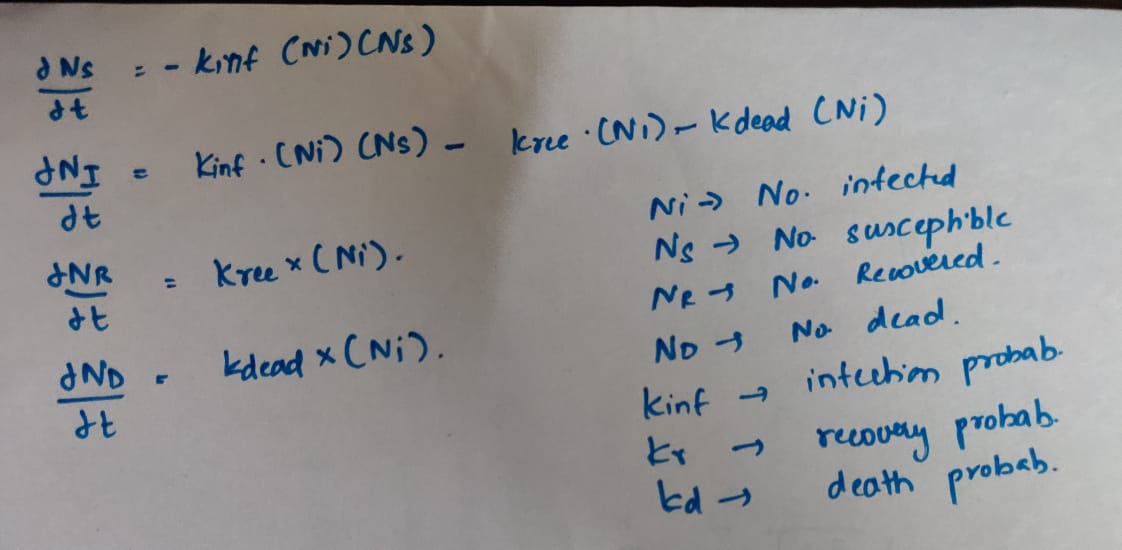 dNs/dt = - kinf (Ni)(Ns)
dNI/dt = Kinf . (Ni) (Ns) - krec . (Ni) - Kdead (Ni)
dNR/dt = Krec × (Ni).
dND/dt = kdead × (Ni).
Ni → No. infected
Ns → No. susceptible
NR → No. Recovered.
ND → No dead.
kinf → infection probab.
kr → recovery probab.
kd → death probab.